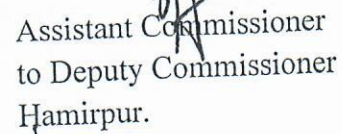 Assistant Commissioner
to Deputy Commissioner
Hamirpur.